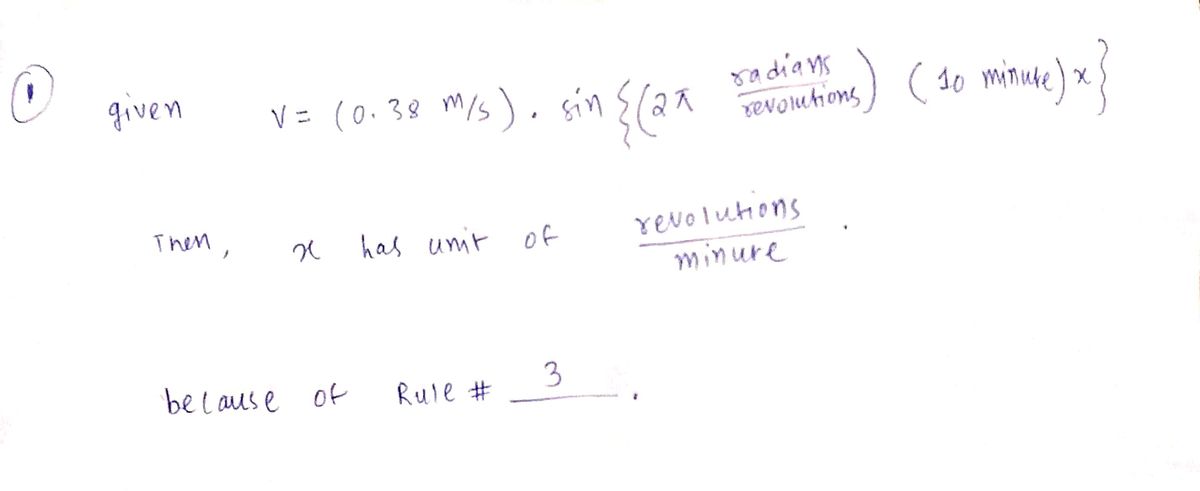 ① given V = (0.38 m/s). sin {(2π radians/revolutions) (10 minute) x}
Then, x has unit of revolutions/minure.
because of Rule # 3.